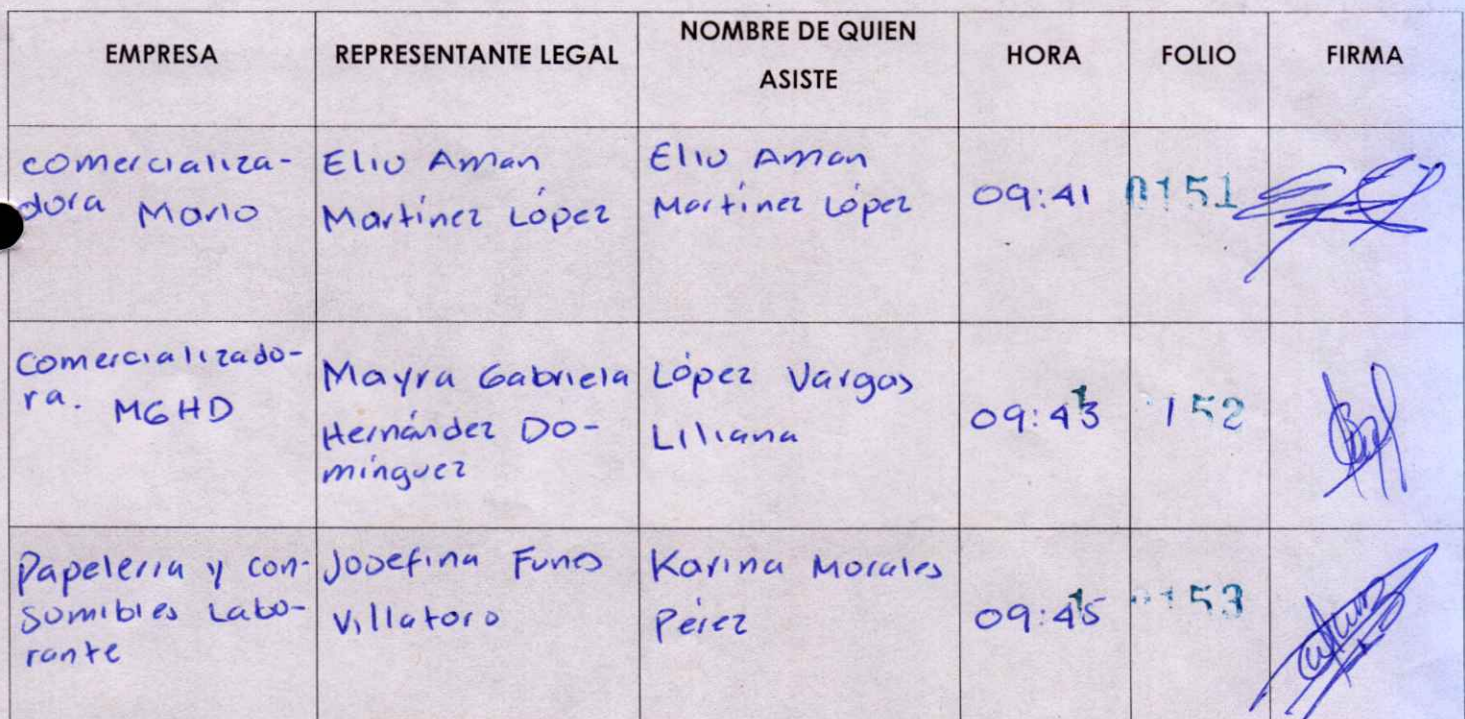 EMPRESA REPRESENTANTE LEGAL NOMBRE DE QUIEN ASISTE HORA FOLIO FIRMA
comercializa-
dora Marlo
Eliu Aman
Martínez López
Eliu Aman
Martínez López
09:41
0151
Comercializado-
ra. MGHD
Mayra Gabriela
Hernández Do-
mínguez
López Vargas
Liliana
09:43
152
Papelería y con-
sumibles Labo-
rante
Josefina Funes
Villatoro
Karina Morales
Pérez
09:45
0153